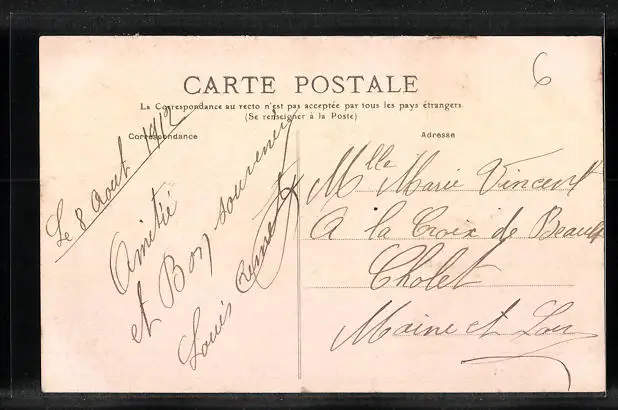 6
CARTE POSTALE
La Correspondance au recto n'est pas acceptée par tous les pays étrangers
(Se renseigner à la Poste)
Correspondance
Adresse
Le 8 Aout 1912
Amitié
et Bon souvenir
Louis
Mlle Marie Vincent
A la Croix de
Cholet
Maine et Loir